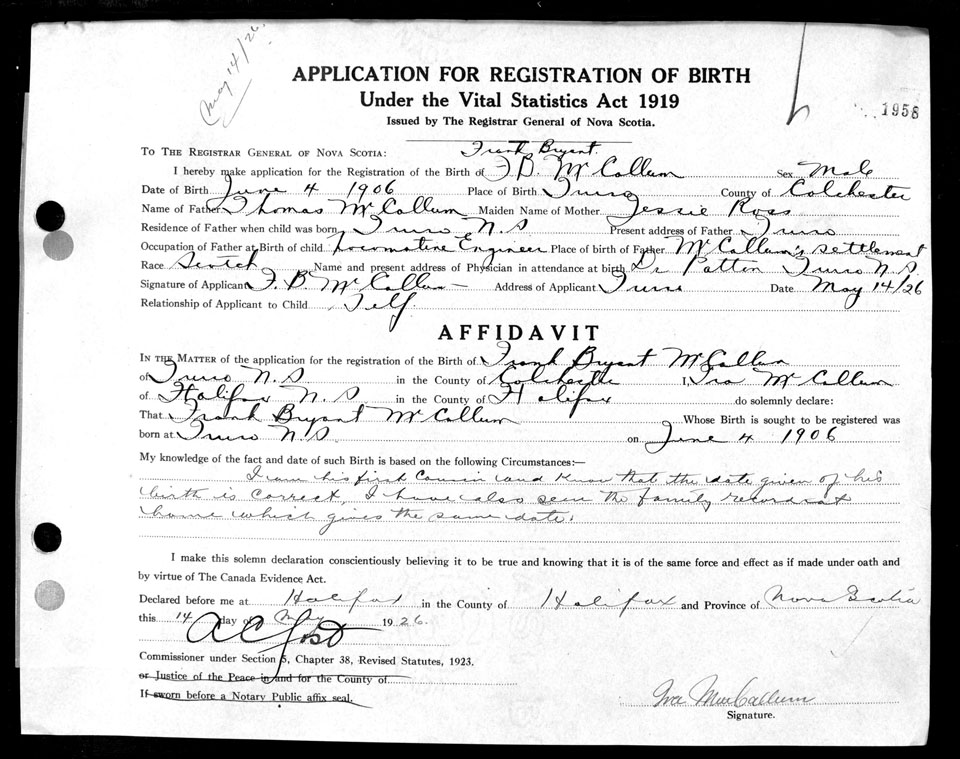 May 14/26
APPLICATION FOR REGISTRATION OF BIRTH
Under the Vital Statistics Act 1919
Issued by The Registrar General of Nova Scotia.
1958
Frank Bryant
TO THE REGISTRAR GENERAL OF NOVA SCOTIA:
I hereby make application for the Registration of the Birth of F. B. McCallum Sex Male
Date of Birth June 4 1906 Place of Birth Truro County of Colchester
Name of Father Thomas McCallum Maiden Name of Mother Jessie Ross
Residence of Father when child was born Truro N.S Present address of Father Truro
Occupation of Father at Birth of child Locomotive Engineer Place of birth of Father McCallum's Settlement
Race Scotch Name and present address of Physician in attendance at birth Dr Patton Truro N.S.
Signature of Applicant F. B. McCallum Address of Applicant Truro Date May 14/26
Relationship of Applicant to Child Self
AFFIDAVIT
IN THE MATTER of the application for the registration of the Birth of Frank Bryant McCallum
of Truro N.S in the County of Colchester I, Ira McCallum
of Halifax N.S in the County of Halifax do solemnly declare:
That Frank Bryant McCallum Whose Birth is sought to be registered was
born at Truro N S on June 4 1906
My knowledge of the fact and date of such Birth is based on the following Circumstances:—
I am his first Cousin and know that the date given of his
birth is correct, I have also seen the family record at
home which gives the same date.
I make this solemn declaration conscientiously believing it to be true and knowing that it is of the same force and effect as if made under oath and
by virtue of The Canada Evidence Act.
Declared before me at Halifax in the County of Halifax and Province of Nova Scotia
this 14 day of May 1926.
A C Jost
Commissioner under Section 5, Chapter 38, Revised Statutes, 1923.
or Justice of the Peace in and for the County of
If sworn before a Notary Public affix seal.
Ira MacCallum
Signature.